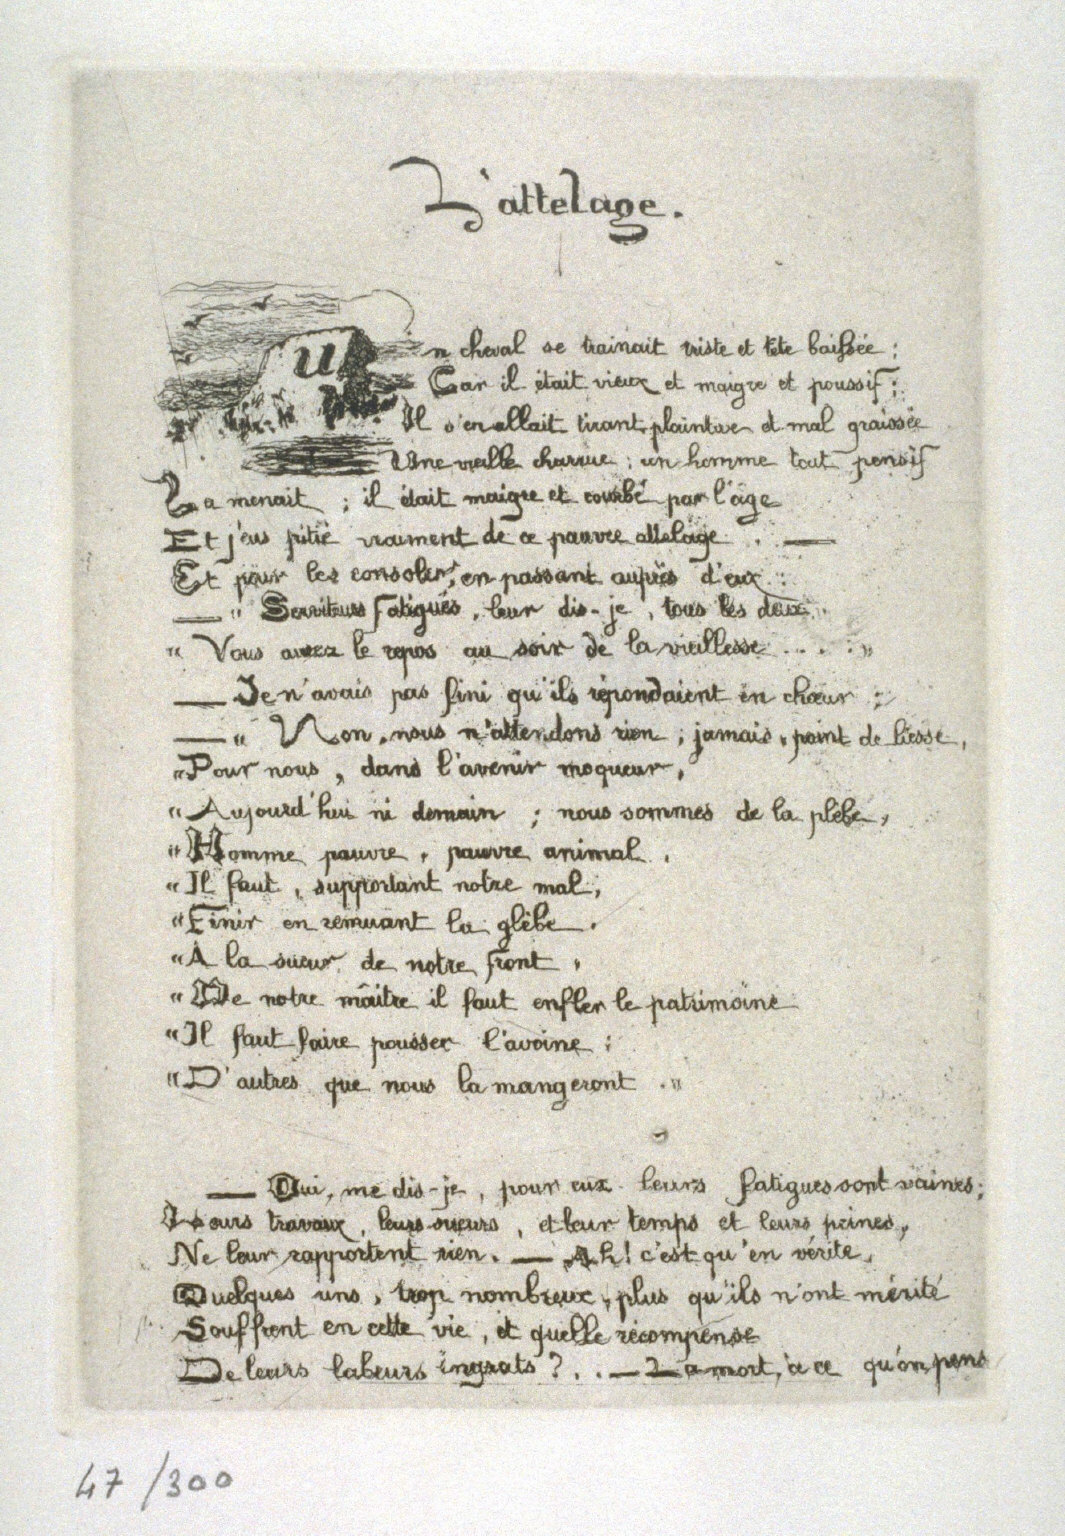 L'attelage.
Un cheval se trainait triste et tete baissée ;
Car il était vieux et maigre et poussif ;
Il s'en allait tirant plaintive et mal graissée
Une vieille charrue ; un homme tout pensif
La menait ; il était maigre et courbé par l'âge
Et j'eus pitié vraiment de ce pauvre attelage . —
Et pour les consoler, en passant auprès d'eux :
— " Serviteurs fatigués, leur dis-je, tous les deux,
" Vous aurez le repos au soir de la vieillesse . . . . "
— Je n'avais pas fini qu'ils répondaient en chœur :
— " Non, nous n'attendons rien ; jamais, point de liesse,
" Pour nous, dans l'avenir moqueur,
" Aujourd'hui ni demain ; nous sommes de la plèbe,
" Homme pauvre, pauvre animal,
" Il faut, supportant notre mal,
" Finir en remuant la glèbe.
" A la sueur de notre front,
" De notre maître il faut enfler le patrimoine
" Il faut faire pousser l'avoine ;
" D'autres que nous la mangeront . "
— Oui, me dis-je, pour eux leurs fatigues sont vaines ;
Leurs travaux, leurs sueurs, et leur temps et leurs peines,
Ne leur rapportent rien. — Ah ! c'est qu'en vérité,
Quelques uns, trop nombreux, plus qu'ils n'ont mérité
Souffrent en cette vie, et quelle récompense
De leurs labeurs ingrats ? . . — La mort, à ce qu'on pens
47/300